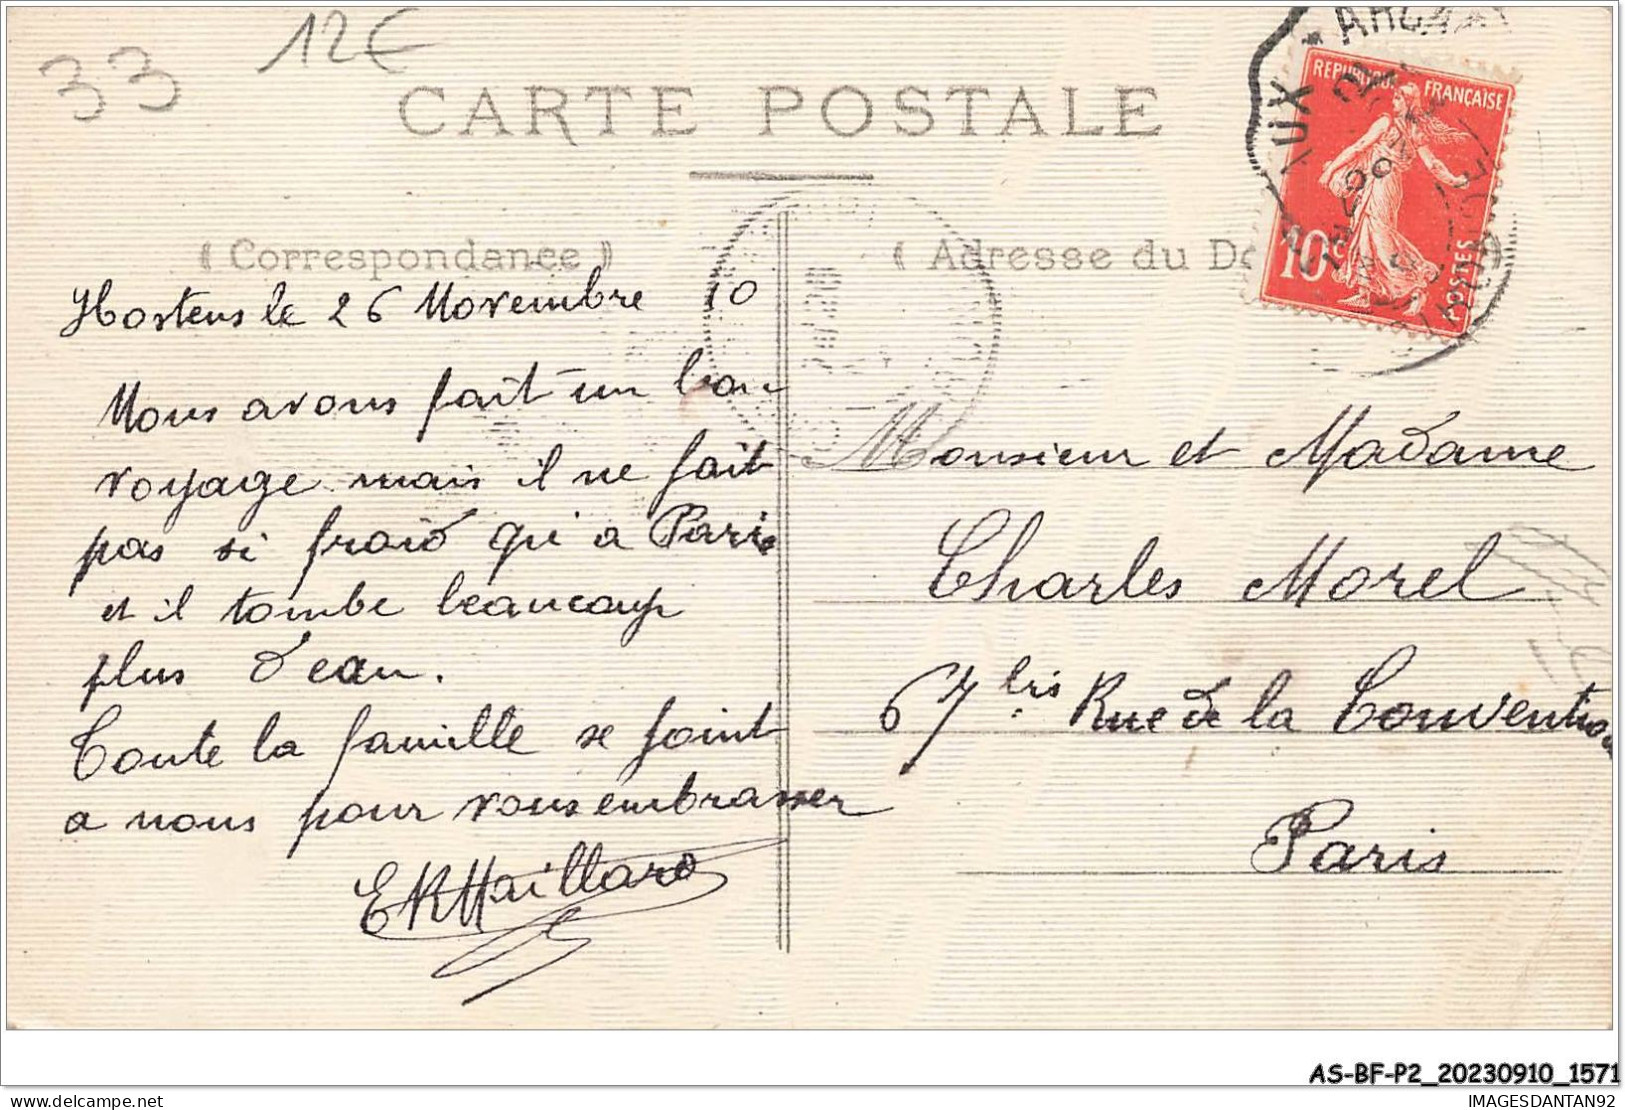 33 12€
CARTE POSTALE
« Correspondance »
« Adresse du D
REPUBLIQUE FRANÇAISE
10 POSTES
Hostens le 26 Novembre 10
Nous avons fait un bon
voyage mais il ne fait
pas si froid qu'a Paris
et il tombe beaucoup
plus d'eau.
Toute la famille se joint
a nous pour vous embrasser
EKMaillard
Monsieur et Madame
Charles Morel
67 bis Rue de la Convention
Paris
AS-BF-P2_20230910_1571
IMAGESDANTAN92